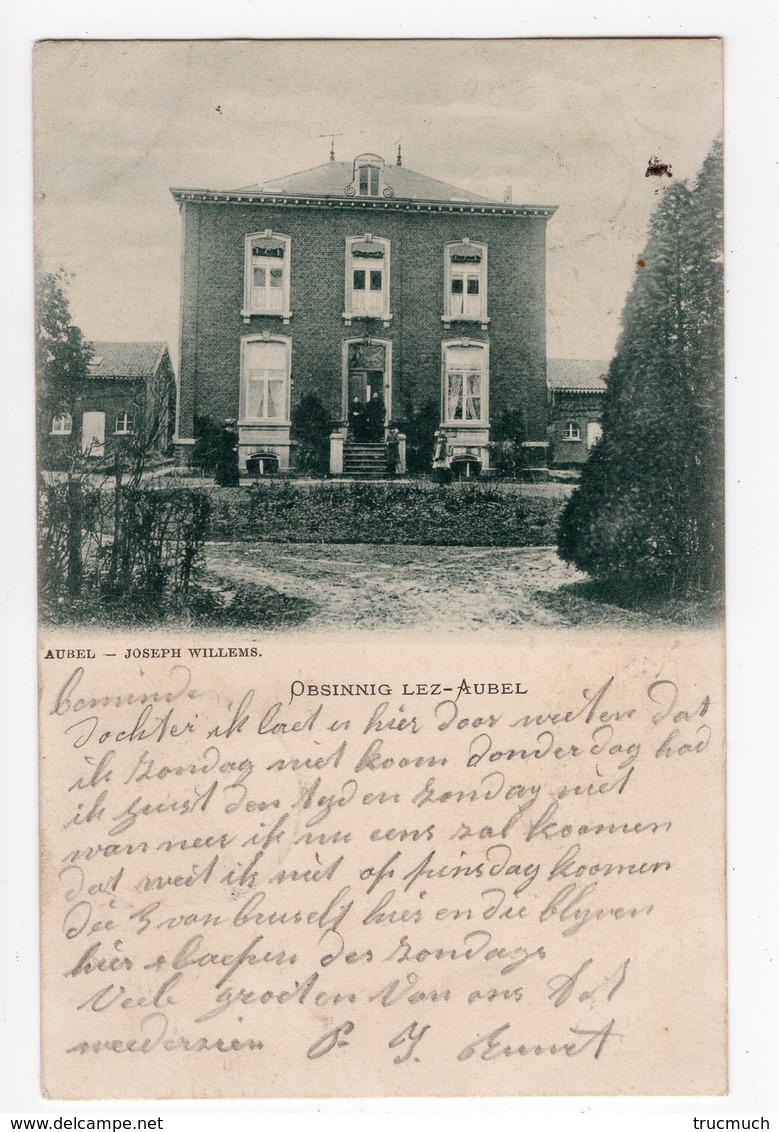 AUBEL — JOSEPH WILLEMS.
OBSINNIG LEZ-AUBEL
beminde
dochter ik laet u hier door weeten dat
ik zondag niet koom donderdag had
ik juist den tyd en zondag niet
wanneer ik nu eens zal koomen
dat weit ik niet op pinsdag koomen
die 3 van brusels hier en die blyven
hier slaepen des zondags
Veele groeten van ons tot
weederzien P. J.
trucmuch